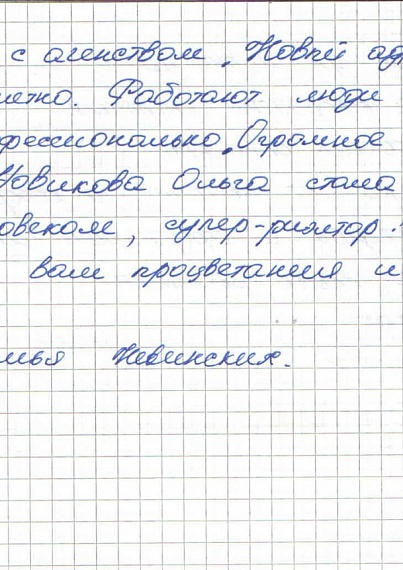 с агенством „Новый ад
Работают люди
фессионально. Огромное
Новикова Ольга стала
овеком, супер-риэлтор.
вам процветания и
мья Невинских.